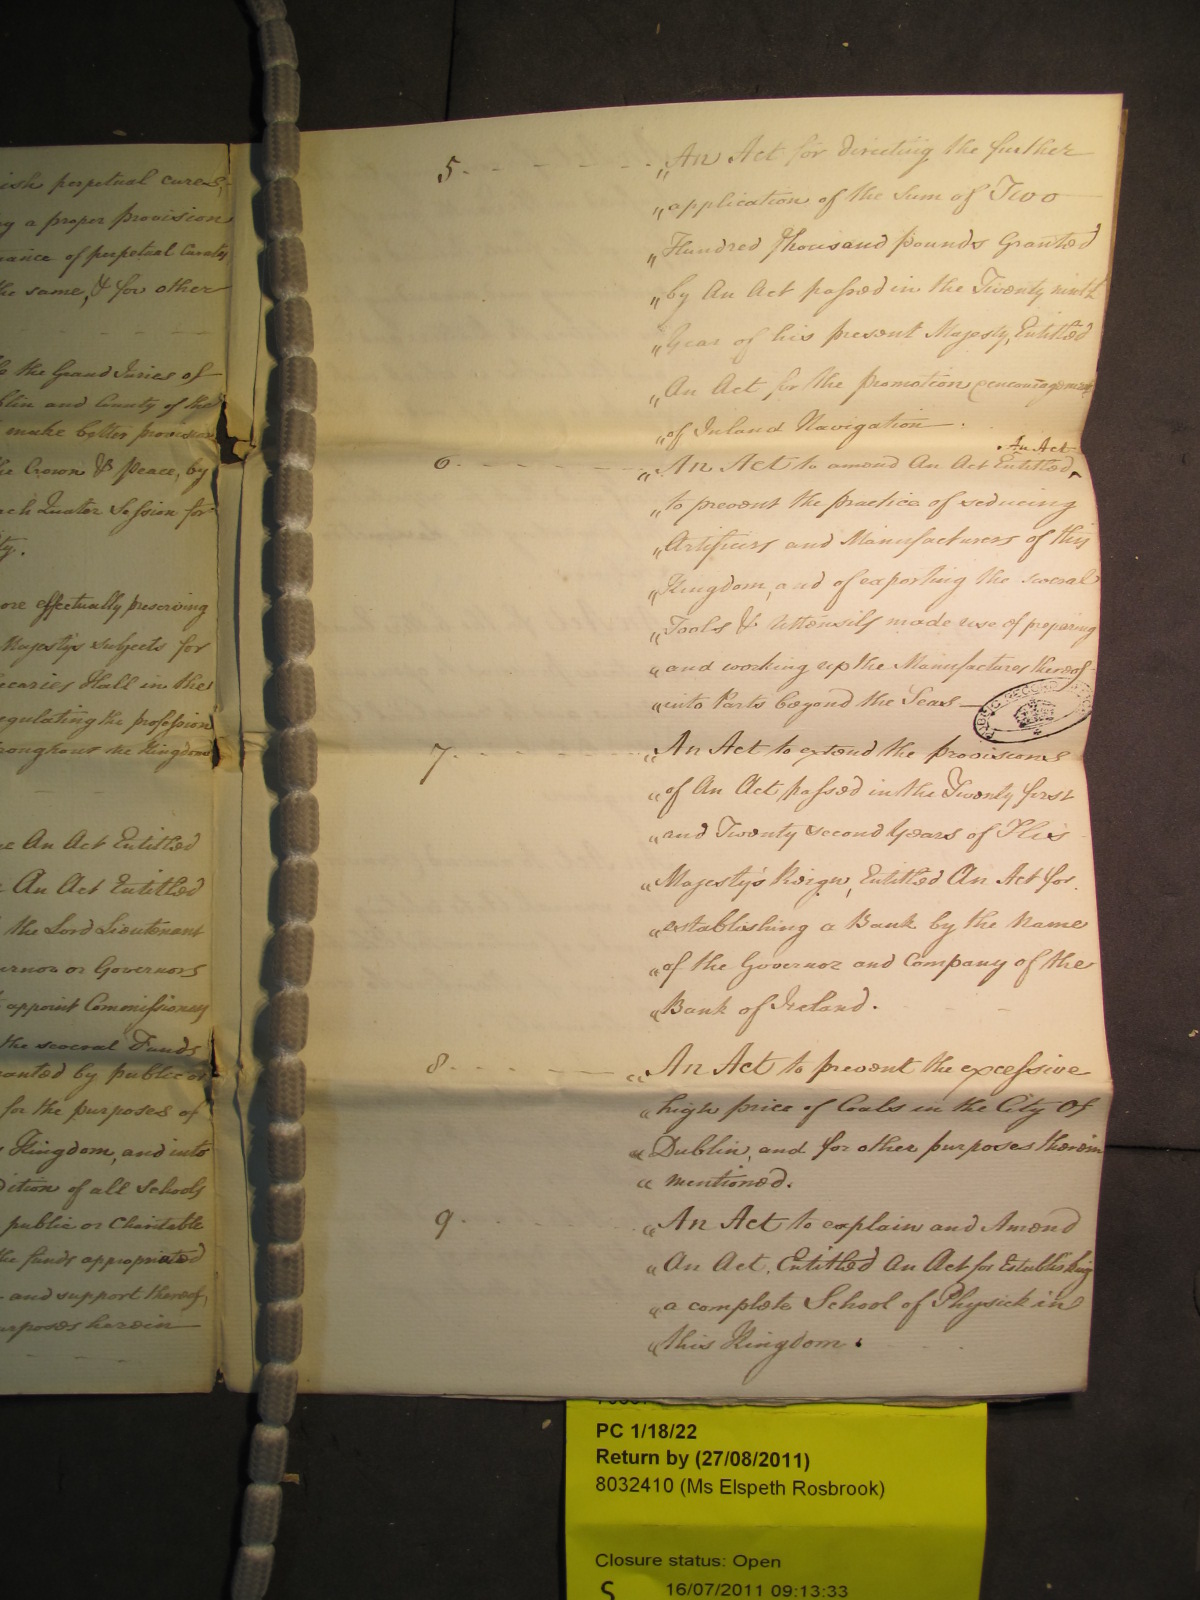 ish perpetual cures,
g a proper provision
nance of perpetual Curates
the same, & for other
to the Grand Juries of
blin and County of the
make better provision
he Crown & Peace, by
ach Quater Session for
ty.
ore effectually preserving
Majestys subjects for
ecaries Hall in the
egulating the profession
roughout the Kingdom
e An Act Entitled
An Act Entitled
the Lord Lieutenant
ernor or Governors
appoint Commissioners
the several Funds
ranted by public or
for the purposes of
Kingdom, and into
dition of all Schools
public or Charitable
the funds appropriated
and support thereof,
urposes herein
5. - - - - - „An Act for directing the further
„application of the Sum of Two
„Hundred Thousand Pounds Granted
„by An Act passed in the Twenty ninth
„Year of his present Majesty, Entitled
„An Act for the Promotion & encouragement
„of Inland Navigation.
6. - - - - - „An Act to amend An Act Entitled, An Act
„to prevent the practice of seducing
„Artificers and Manufacturers of this
„Kingdom, and of exporting the several
„Tools & Uttensils made use of preparing
„and working up the Manufactures thereof
„into Parts beyond the Seas
PUBLIC RECORD
7. - - - - - „An Act to extend the provisions
„of An Act passed in the Twenty first
„and Twenty second Years of His
„Majesty's Reign, Entitled An Act for
„establishing a Bank by the Name
„of the Governor and Company of the
„Bank of Ireland.
8. - - - - - „An Act to prevent the excessive
„high price of Coals in the City Of
„Dublin, and for other purposes therein
„mentioned.
9. - - - - - „An Act to explain and Amend
„An Act, Entitled An Act for Establishing
„a complete School of Physick in
„this Kingdom.
PC 1/18/22
Return by (27/08/2011)
8032410 (Ms Elspeth Rosbrook)
Closure status: Open
S 16/07/2011 09:13:33